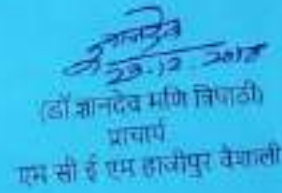 ज्ञानदेव
29.12.2018
(डॉ ज्ञानदेव मणि त्रिपाठी)
प्राचार्य
एम सी ई एम हाजीपुर वैशाली